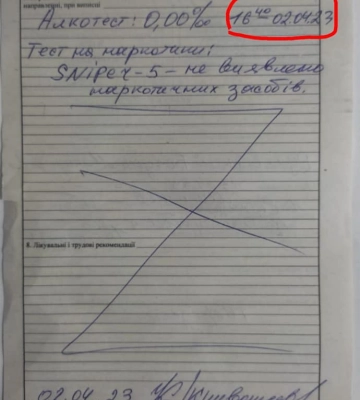 направлення, при виписці
Алкотест: 0,00‰ 16⁴⁰ 02.04.23
Тест на наркотики:
SNiper-5 - не виявлено
наркотичних засобів.
8. Лікувальні і трудові рекомендації
02.04.23